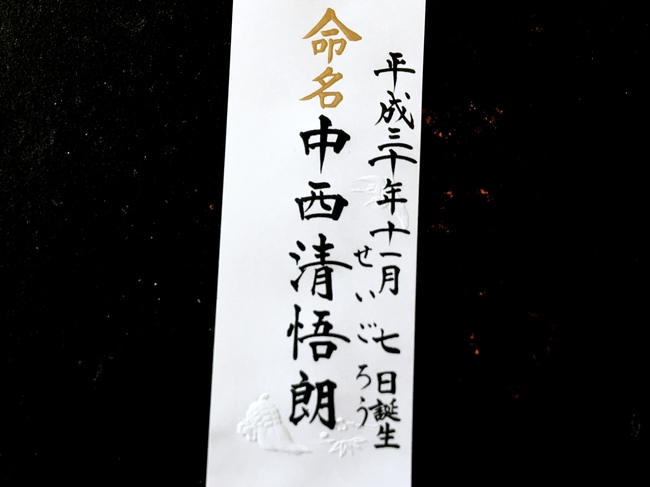 平成三十年十一月七日誕生
命名
中西清悟朗
せいごろう